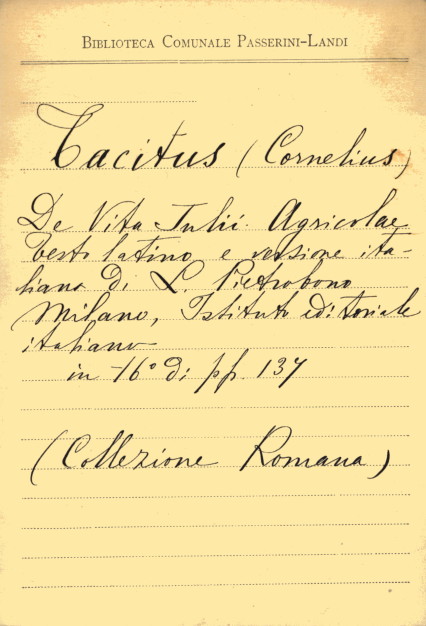 BIBLIOTECA COMUNALE PASSERINI-LANDI
Tacitus (Cornelius)
De Vita Julii Agricolae
testo latino e versione ita-
liana di L. Pietrobono
Milano, Istituto editoriale
italiano
in -16° di pp. 137
(Collezione Romana)